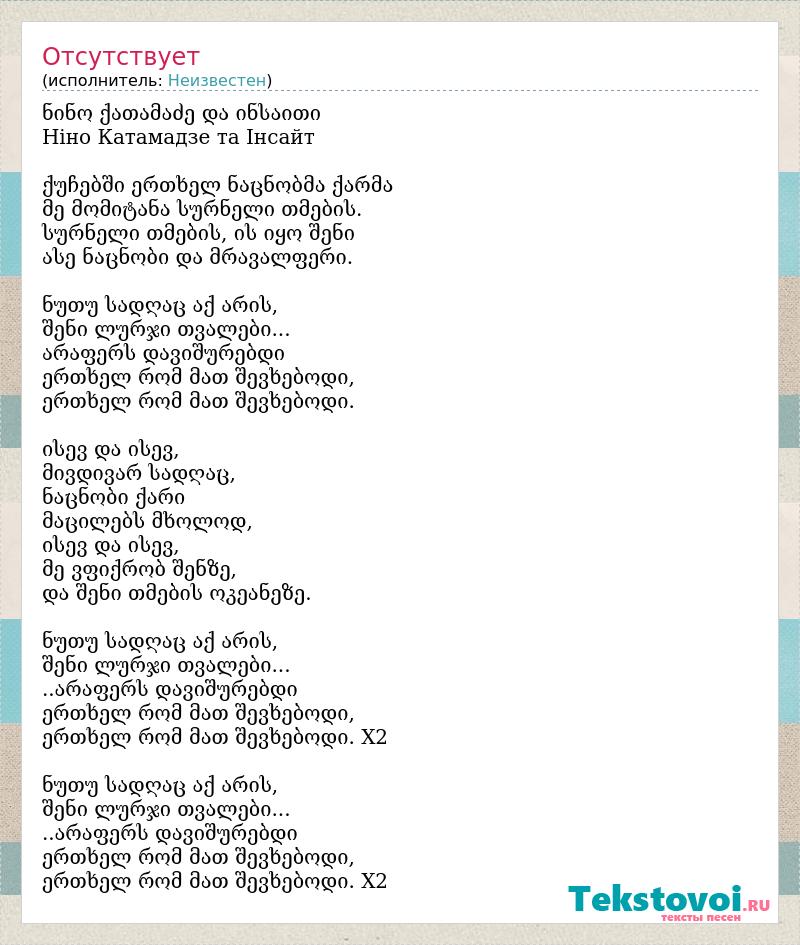 Отсутствует
(исполнитель: Неизвестен)
ნინო ქათამაძე და ინსაითი
Ніно Катамадзе та Інсайт
ქუჩებში ერთხელ ნაცნობმა ქარმა
მე მომიტანა სურნელი თმების.
სურნელი თმების, ის იყო შენი
ასე ნაცნობი და მრავალფერი.
ნუთუ სადღაც აქ არის,
შენი ლურჯი თვალები...
არაფერს დავიშურებდი
ერთხელ რომ მათ შევხებოდი,
ერთხელ რომ მათ შევხებოდი.
ისევ და ისევ,
მივდივარ სადღაც,
ნაცნობი ქარი
მაცილებს მხოლოდ,
ისევ და ისევ,
მე ვფიქრობ შენზე,
და შენი თმების ოკეანეზე.
ნუთუ სადღაც აქ არის,
შენი ლურჯი თვალები...
..არაფერს დავიშურებდი
ერთხელ რომ მათ შევხებოდი,
ერთხელ რომ მათ შევხებოდი. X2
ნუთუ სადღაც აქ არის,
შენი ლურჯი თვალები...
..არაფერს დავიშურებდი
ერთხელ რომ მათ შევხებოდი,
ერთხელ რომ მათ შევხებოდი. X2
Tekstovoi.RU
тексты песен